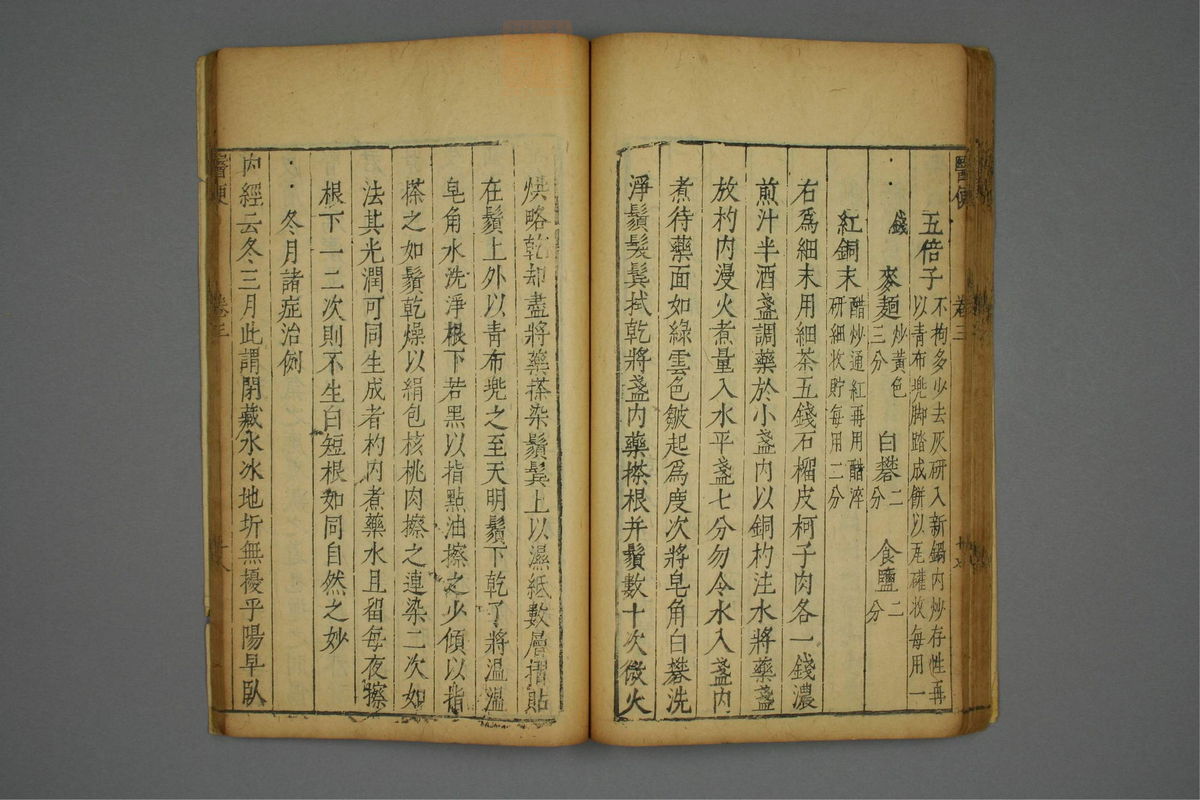 醫便 卷三
五倍子 不拘多少去灰研入新鍋內炒存性再以青布兜脚踏成餅以瓦礶收每用一
錢 麥麵 炒黃色三分 白礬 二分 食鹽 二分
紅銅末 醋炒通紅再用醋淬研細收貯每用二分
右爲細末用細茶五錢石榴皮柯子肉各一錢濃
煎汁半酒盞調藥於小盞內以銅杓注水將藥盞
放杓內漫火煮量入水平盞七分勿令水入盞內
煮待藥面如綠雲色皺起爲度次將皂角白礬洗
淨鬚髮鬓拭乾將盞內藥搽根并鬚數十次微火
烘略乾却盡將藥搽染鬚鬓上以濕紙數層摺貼
在鬚上外以青布兜之至天明鬚下乾了將溫溫
皂角水洗淨根下若黑以指點油擦之少傾以指
搽之如鬚乾燥以絹包核桃肉擦之連染二次如
法其光潤可同生成者杓內煮藥水且留每夜擦
根下一二次則不生白短根如同自然之妙
冬月諸症治例
內經云冬三月此謂閉藏水冰地坼無擾乎陽早臥
醫便 卷三